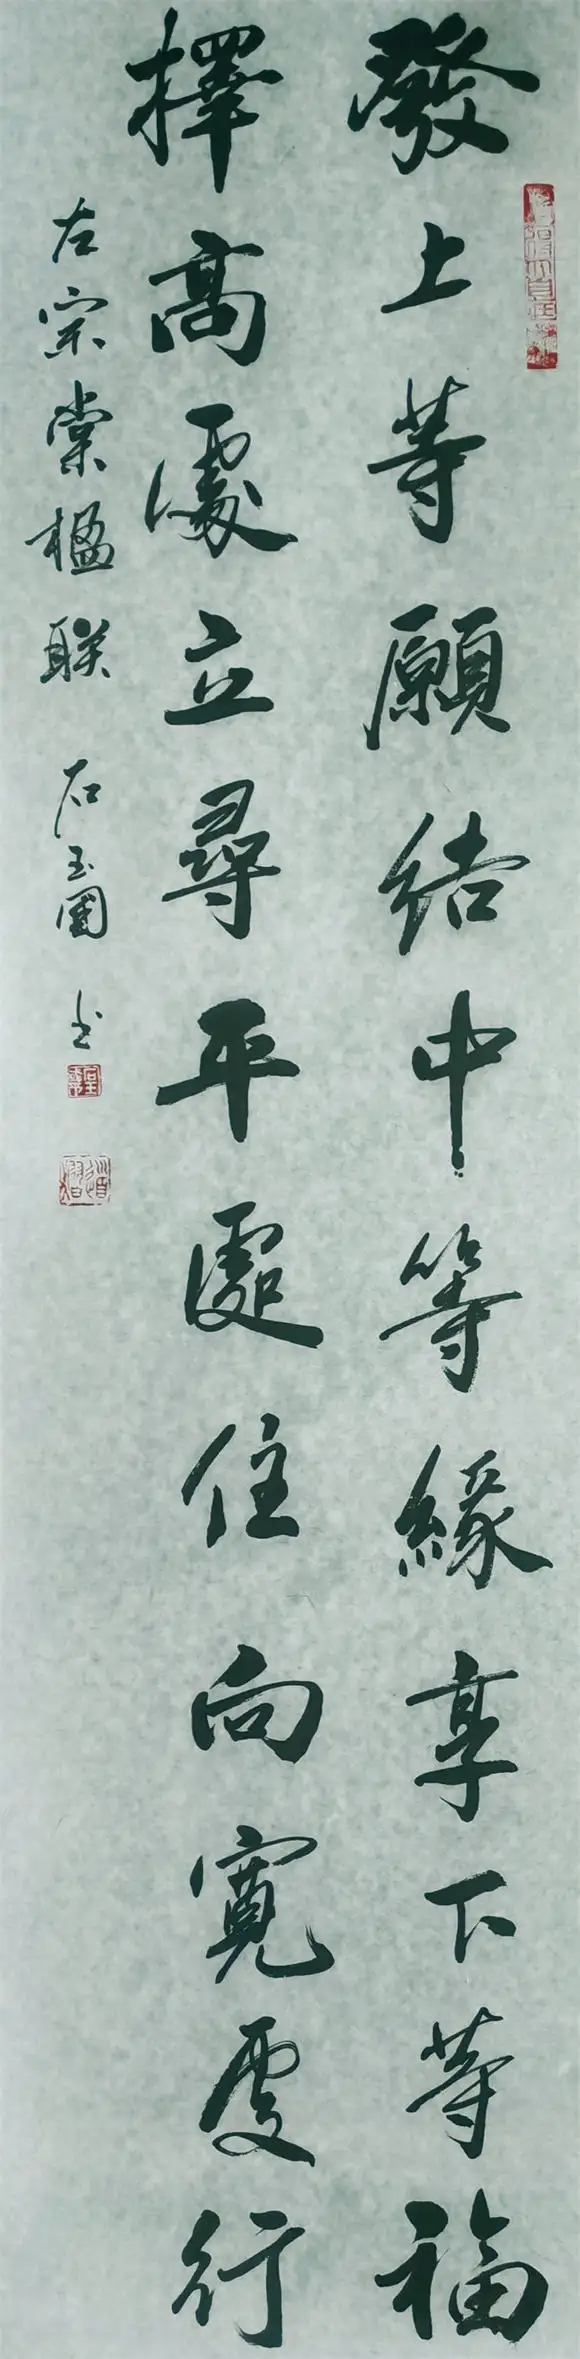 發上等願結中等緣享下等福
擇高處立尋平處住向寬處行
左宗棠楹联 石玉圃书